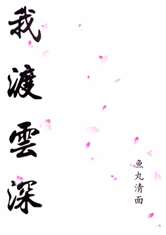 我渡雲深
魚丸清面